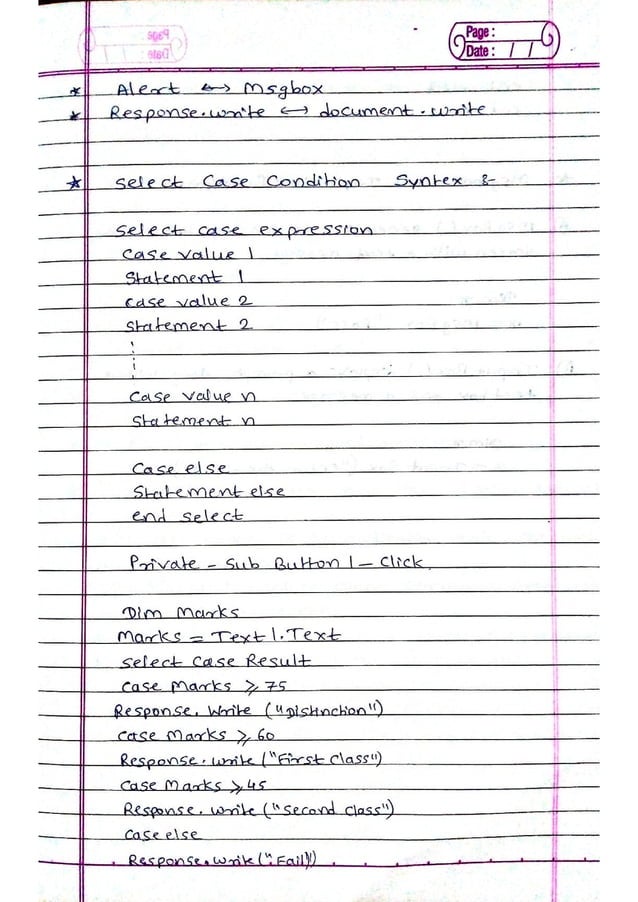 Page :
Date : / /
* Alert ↔ Msgbox
* Response.write ↔ document.write
* Select Case Condition Syntex :-
Select case expression
Case value 1
Statement 1
case value 2
Statement 2
Case value n
Statement n
Case else
Statement else
end select
Private - Sub Button 1 - Click
Dim Marks
Marks = Text 1.Text
Select Case Result
Case Marks ≥ 75
Response. Write ("Distinction")
case Marks ≥ 60
Response.write ("First Class")
Case Marks ≥ 45
Response. write ("Second Class")
Case else
Response.write ("Fail")